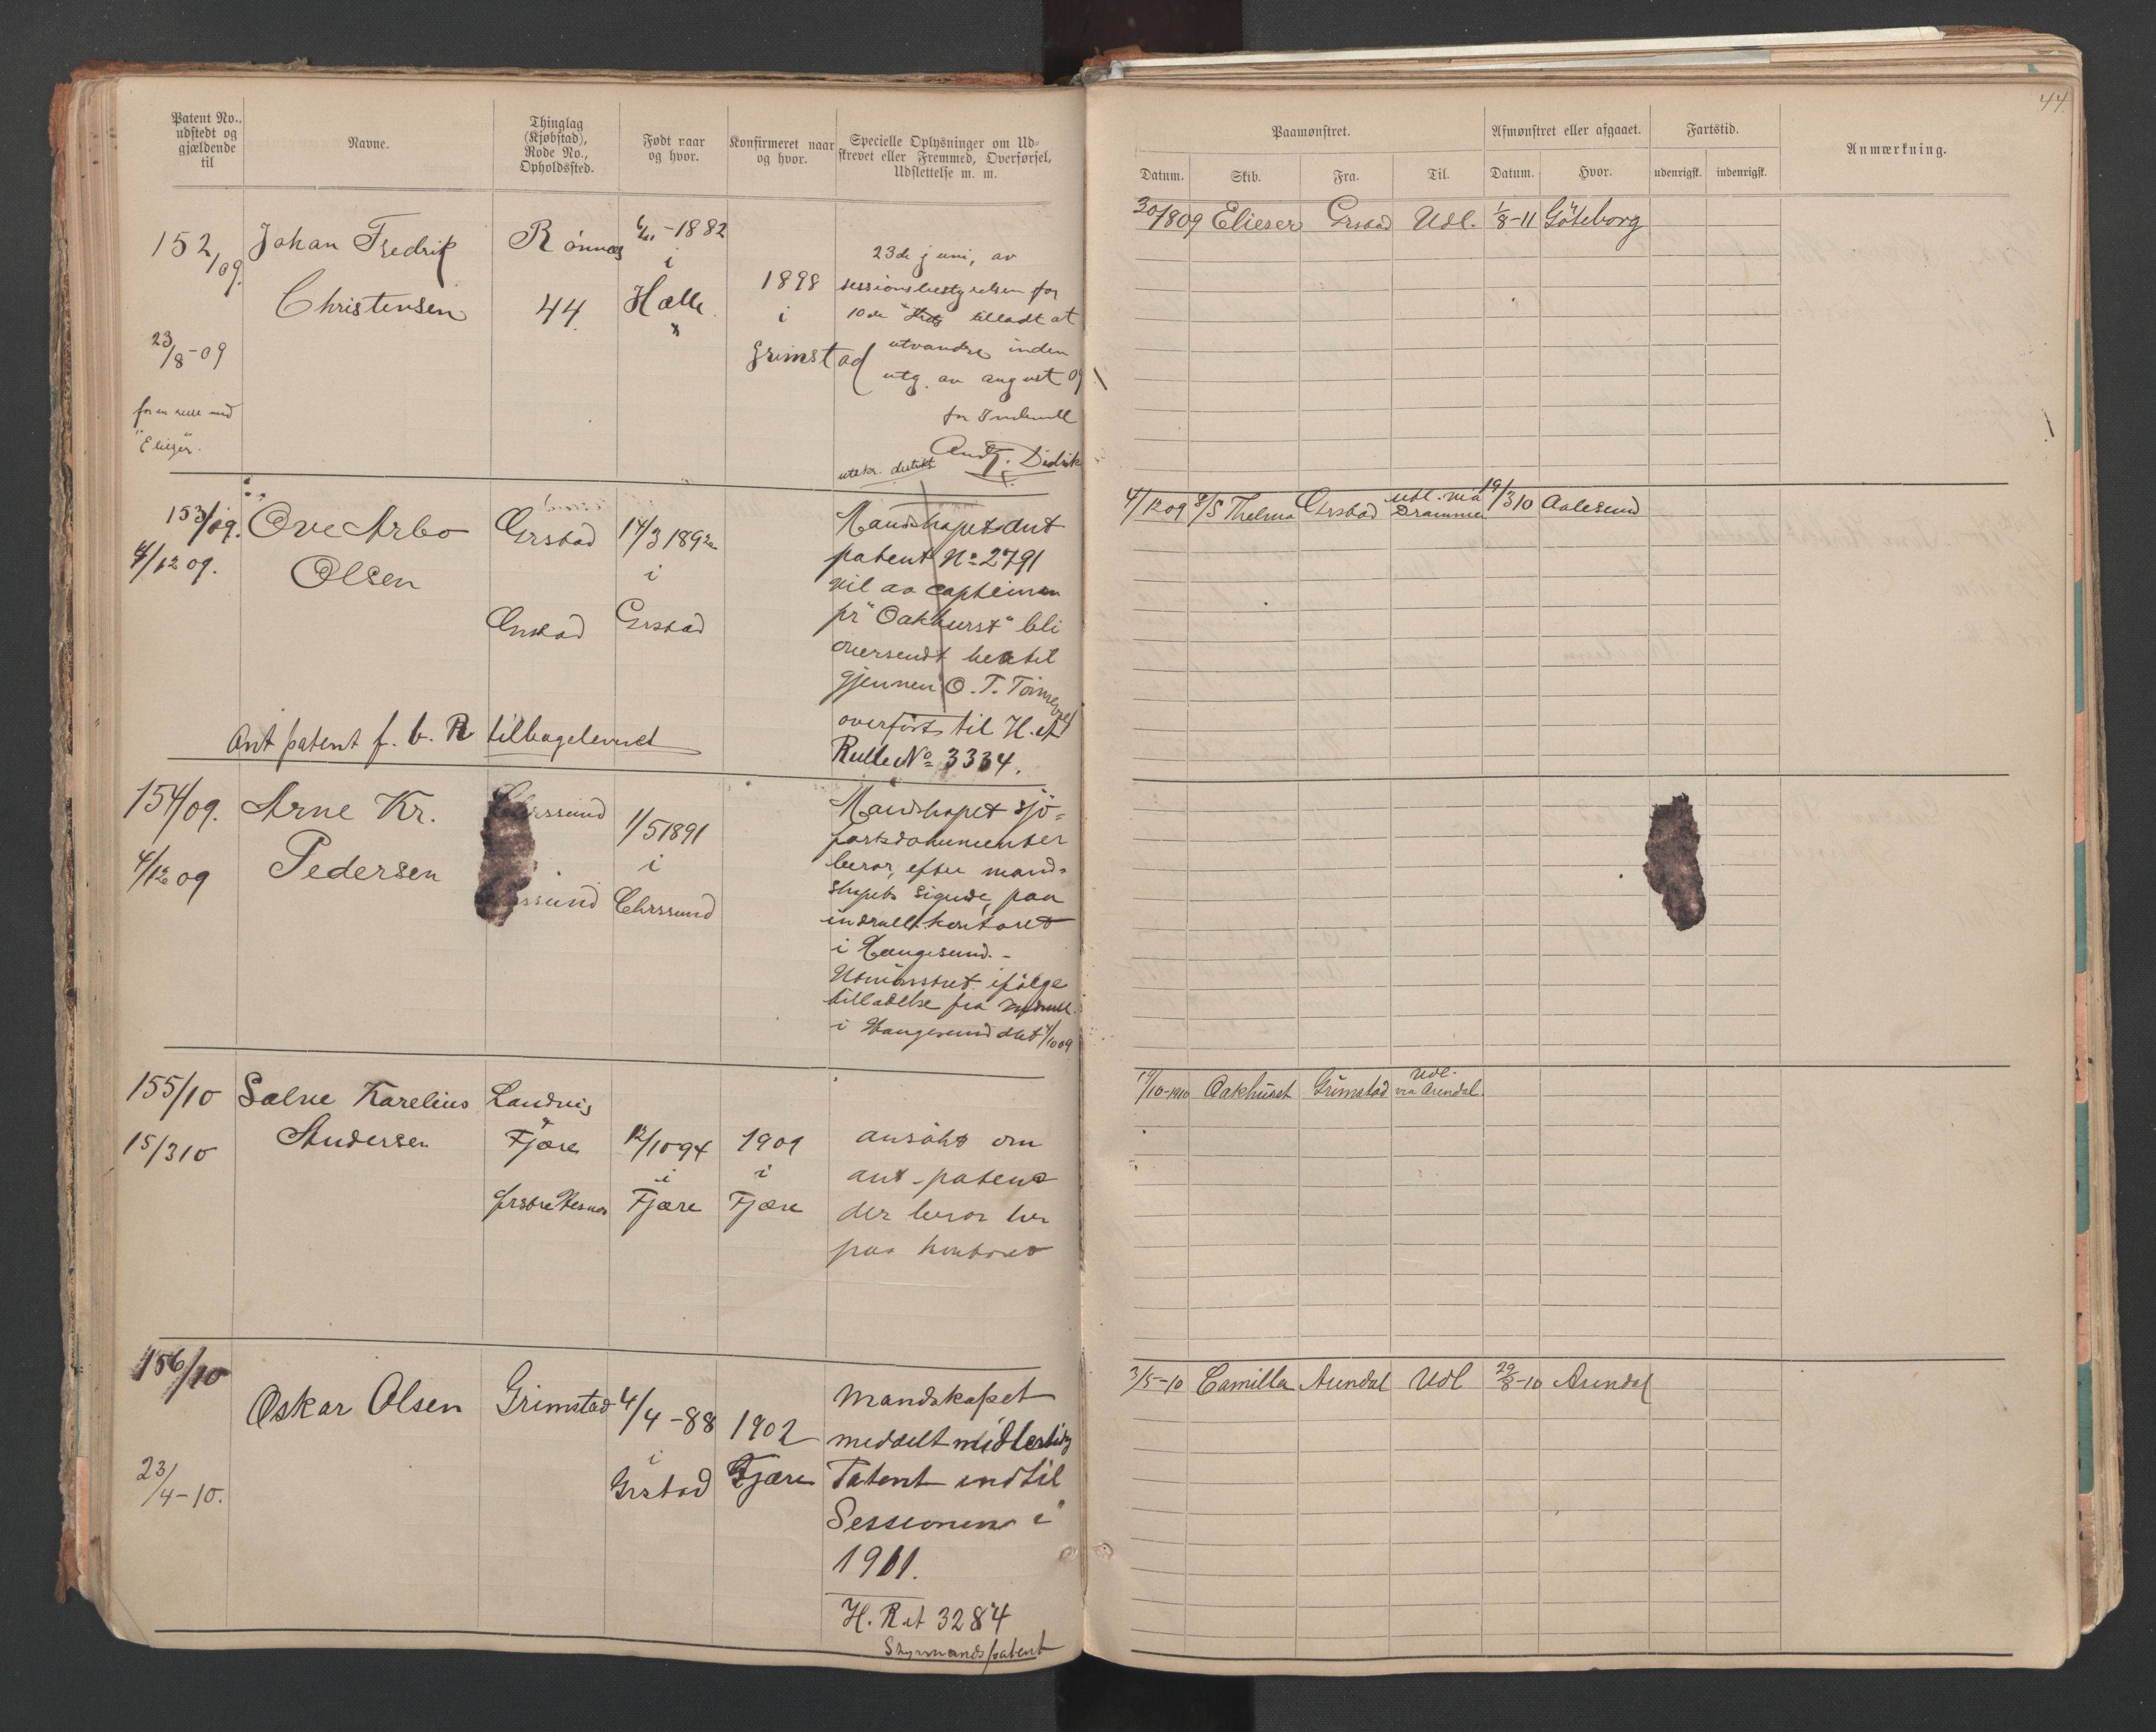 44.
Patent No.,
udstedt og
gjældende
til
Navne.
Thinglag
(Kjøbstad),
Rode No.,
Opholdssted.
Født naar
og hvor.
Konfirmeret naar
og hvor.
Specielle Oplysninger om Ud-
skrevet eller Fremmed, Overførsel,
Udslettelse m. m.
Paamønstret.
Afmønstret eller afgaaet.
Fartstid.
Anmærkning.
Datum.
Skib.
Fra.
Til.
Datum.
Hvor.
udenrigsk.
indenrigsk.
152/09.
23/8-09
for en reise med
"Eliezer".
Johan Fredrik
Christensen
Rønnes
44.
-1882
i
1898
i
Grimstad
23de juni, av
sessionsbestyrelsen for
10de tilladt at
utvandre inden
utg. av august 09
for
utskr. distrikt
30/809 Elieser Grstad Udl. 1/8-11 Göteborg
153/09.
4/12 09.
Ove Arbo
Olsen
Grstad
Grstad
14/3 1892
i
Grstad
Mandskapets ant
patent No 2791
vil av capteinen
pr "Oakhurst" bli
oversendt hertil
gjennem O. T.
overført til H. et
Rulle No 3334.
Ant patent f. b. R tilbageleveret
4/12 09 S/S Thelma Grstad Udl. via
Drammen
19/3 10 Aalesund
154/09.
4/12 09
Arne Kr.
Pedersen
1/5 1891
i
Chrssund
Mandskapet sjö-
fartsdokumenter
beror, efter mand-
skapets sigende, paa
indrull.kontoret
i Haugesund.-
Utmönstret ifölge
tilladelse fra indrull.
i Haugesund dat 4/10 09
155/10
15/3 10
Salve Karelius
Andersen
Landvig
Fjære
12/10 94
i
Fjære
1909
i
Fjære
ansökt om
ant-patent
der beror her
paa kontoret
19/10-1910 Oakhurst Grimstad Udl.
via Arendal.
156/10
23/4-10.
Oskar Olsen
Grimstad
4/4-88
i
Grstad
1902
Fjære
Mandskapet
meddelt midlertidig
Patent indtil
Sessionen i
1911.
H. R et 3284
Styrmandspatent
3/5-10 Camilla Arendal Udl 29/8-10 Arendal